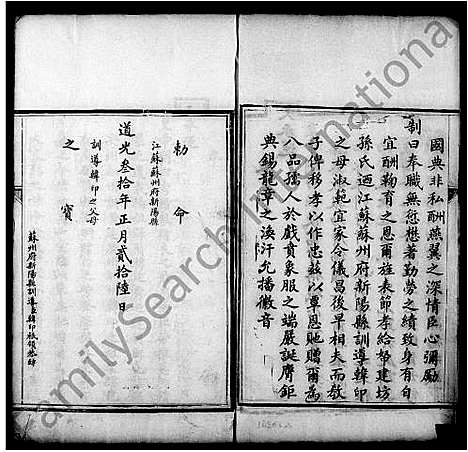 國典非私酬燕翼之深情臣心彌勵
制曰奉職無愆懋著勤勞之績致身有自
宜酬鞠育之恩爾旌表節孝給帑建坊
孫氏迺江蘇蘇州府新陽縣訓導韓印
之母淑範宜家令儀昌後早相夫而教
子俾移孝以作忠茲以覃恩貤贈爾為
八品孺人於戲賁象服之端嚴誕膺鉅
典錫龍章之渙汗允播徽音
勅命
江蘇蘇州府新陽縣
道光叁拾年正月貳拾陸日
訓導韓印之父母
之寶
蘇州府新陽縣訓導臣韓印祗領恭
FamilySearch International